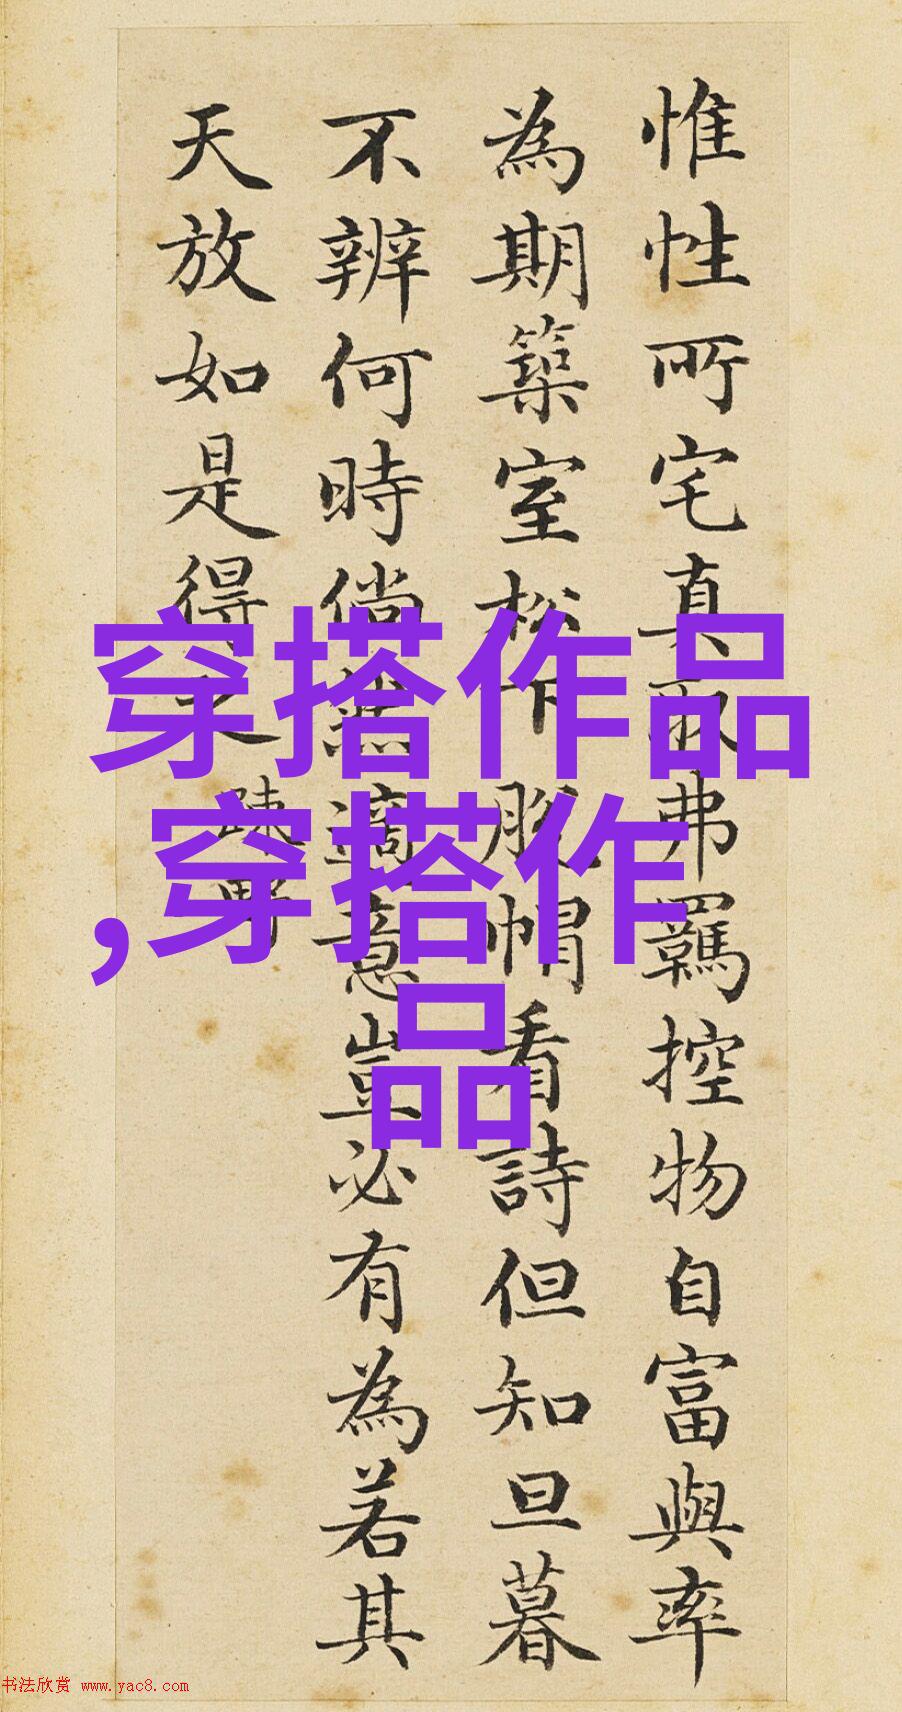 惟性所宅真取弗羈控物自富與率
為期築室松下脫帽看詩但知旦暮
不辨何時倘然適意豈必有為若其
天放如是得之
疎野
穿搭作品
,穿搭作
品
书法欣赏 www.yac8.com